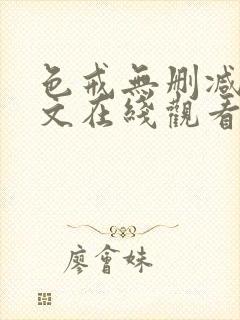 色戒無刪减
文在綫觀看
廖會妹